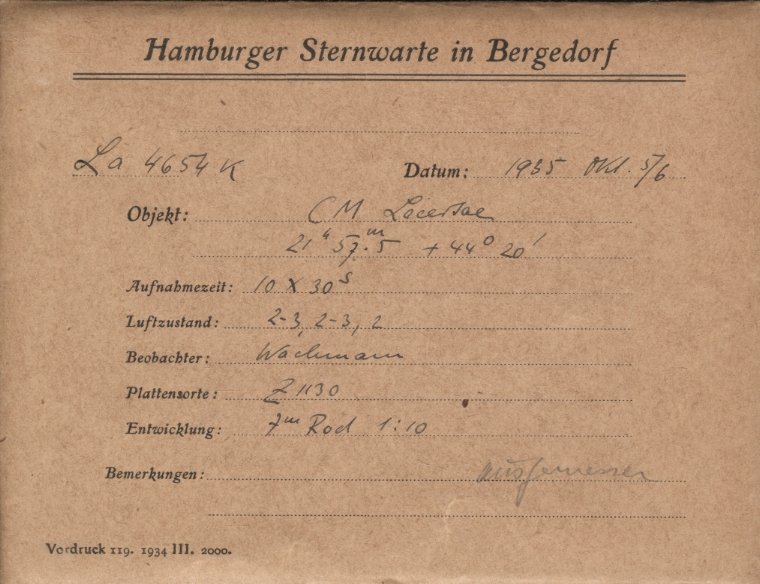 Hamburger Sternwarte in Bergedorf
La 4654 K Datum: 1935 Okt. 5/6
Objekt: CM Lacertae
21ʰ 57.ᵐ5 + 44° 20'
Aufnahmezeit: 10 × 30ˢ
Luftzustand: 2-3, 2-3, 2
Beobachter: Wachmann
Plattensorte: Z 1130
Entwicklung: 7ᵐ Rod 1:10
Bemerkungen: ausgemessen
Vordruck 119. 1934 III. 2000.